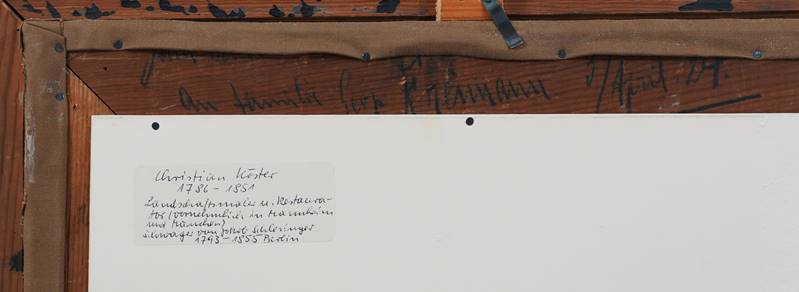 An Familie
3/April 27.
Christian Köster
1786 - 1851
Landschaftsmaler u. Restaura-
tor (vornehmlich in Mannheim
und München)
Schwager von Jakob Schlesinger
1793 - 1855 Berlin